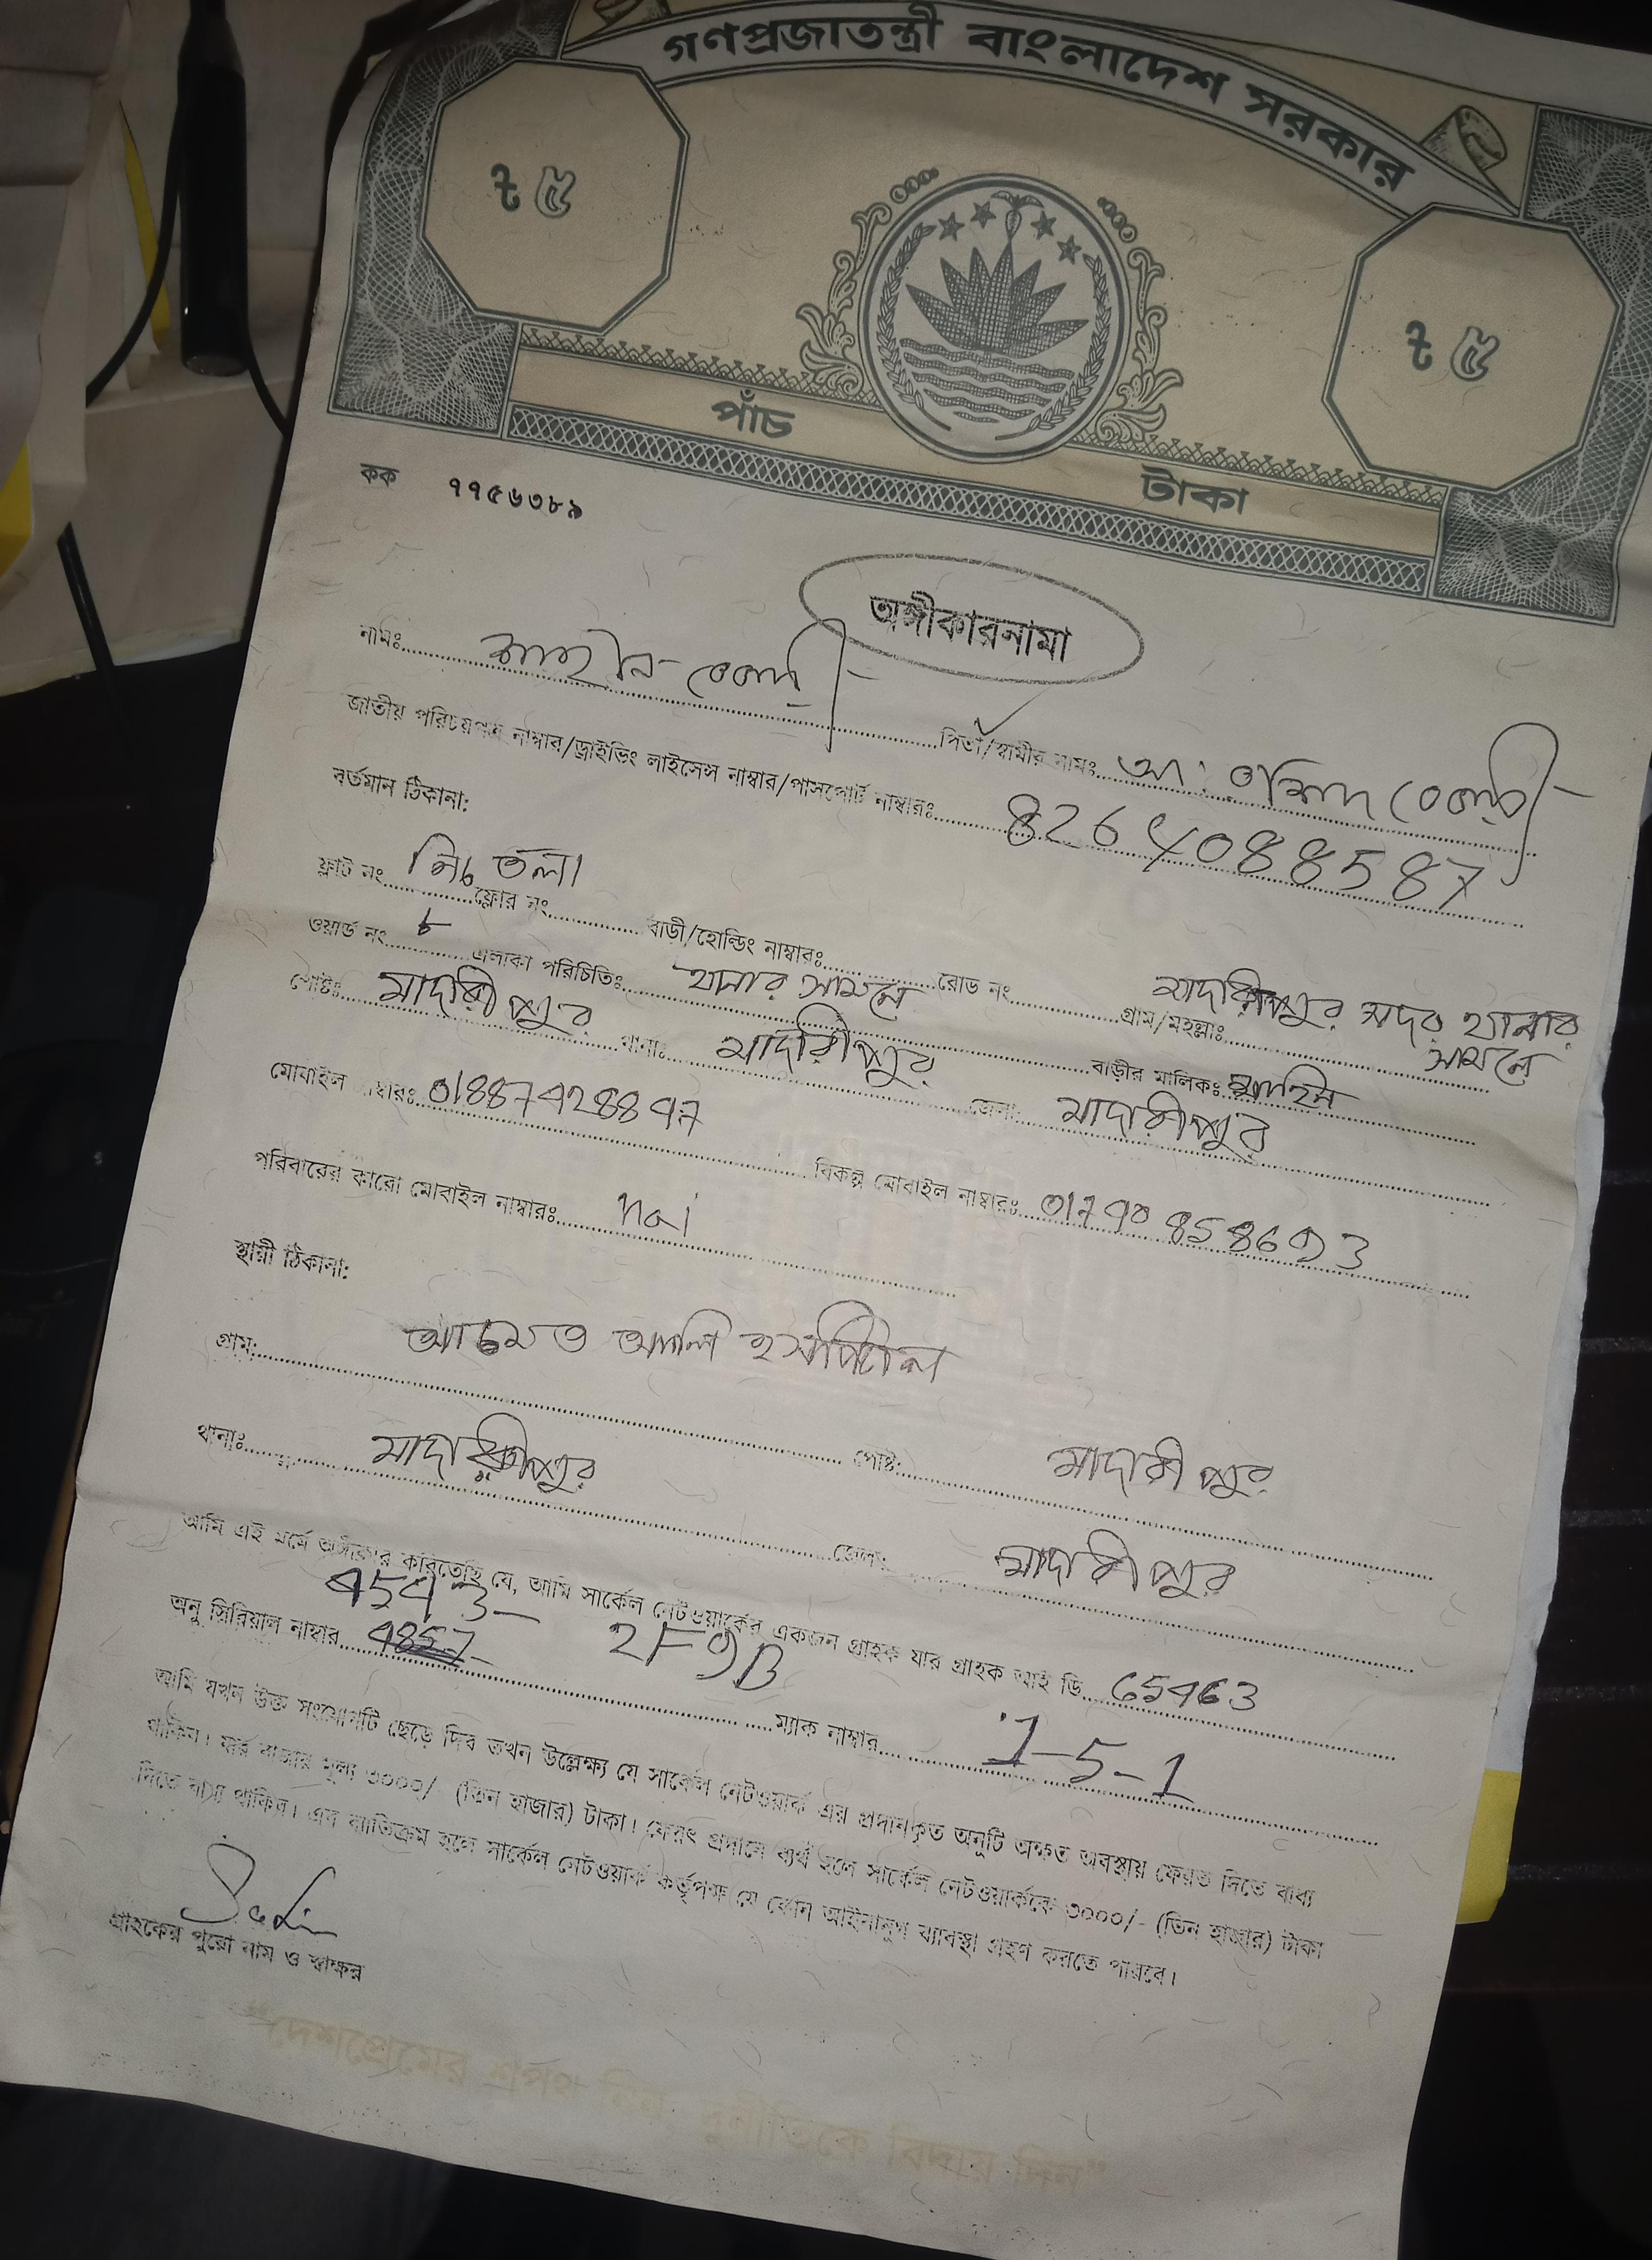 গণপ্রজাতন্ত্রী বাংলাদেশ সরকার
৳ ৫ ৳ ৫
পাঁচ টাকা
কক ৭৭৫৬৩৮৯
অঙ্গীকারনামা
নামঃ পিতা/স্বামীর নামঃ আঃ
জাতীয় পরিচয়পত্র নাম্বার/ড্রাইভিং লাইসেন্স নাম্বার/পাসপোর্ট নাম্বারঃ 8264088587
বর্তমান ঠিকানা:
ফ্লাট নং নিচ তলা ফ্লোর নং বাড়ী/হোল্ডিং নাম্বারঃ রোড নং গ্রাম/মহল্লাঃ মাদারীপুর সদর থানার সামনে
ওয়ার্ড নং ৮ এলাকা পরিচিতিঃ থানার সামনে বাড়ীর মালিকঃ
পোষ্টঃ মাদারীপুর থানাঃ মাদারীপুর জেলাঃ মাদারীপুর
মোবাইল নাম্বারঃ বিকল্প মোবাইল নাম্বারঃ
পরিবারের কারো মোবাইল নাম্বারঃ nai
স্থায়ী ঠিকানা:
গ্রাম: আলি হসপিটাল পোষ্ট: মাদারীপুর
থানাঃ মাদারীপুর জেলা: মাদারীপুর
আমি এই মর্মে অঙ্গীকার করিতেছি যে, আমি সার্কেল নেটওয়ার্কের একজন গ্রাহক যার গ্রাহক আই ডি 65463
অনু সিরিয়াল নাম্বার 2F9B ম্যাক নাম্বার 1-5-1
আমি যখন উক্ত সংযোগটি ছেড়ে দিব তখন উল্লেক্ষ্য যে সার্কেল নেটওয়ার্ক এর প্রদানকৃত অনুটি অক্ষত অবস্থায় ফেরত দিতে বাধ্য
থাকিব। যার বাজার মূল্য ৩০০০/- (তিন হাজার) টাকা। ফেরৎ প্রদানে ব্যর্থ হলে সার্কেল নেটওয়ার্ককে ৩০০০/- (তিন হাজার) টাকা
দিতে বাধ্য থাকিব। এর ব্যাতিক্রম হলে সার্কেল নেটওয়ার্ক কর্তৃপক্ষ যে কোন আইনানুগ ব্যাবস্থা গ্রহণ করতে পারবে।
গ্রাহকের পুরো নাম ও স্বাক্ষর
"দেশপ্রেমের শপথ নিন, দুর্নীতিকে বিদায় দিন"